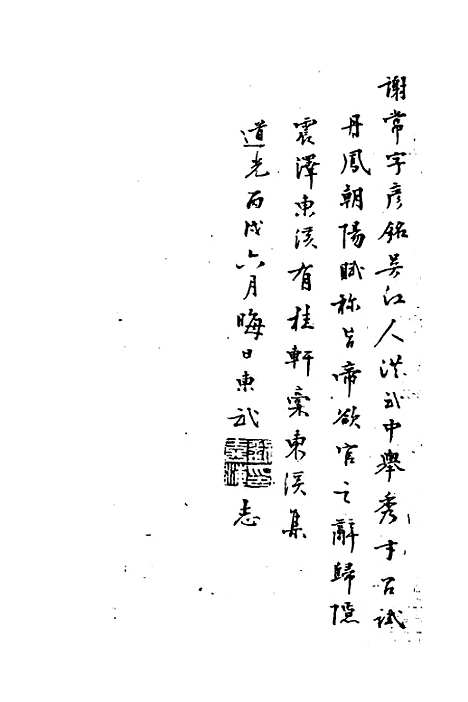 謝常字彥銘吳江人洪武中舉秀才召試
丹鳳朝陽賦称旨帝欲官之辭歸隱
震澤東溪有桂軒稾東溪集
道光丙戌六月晦日東武
劉喜海志